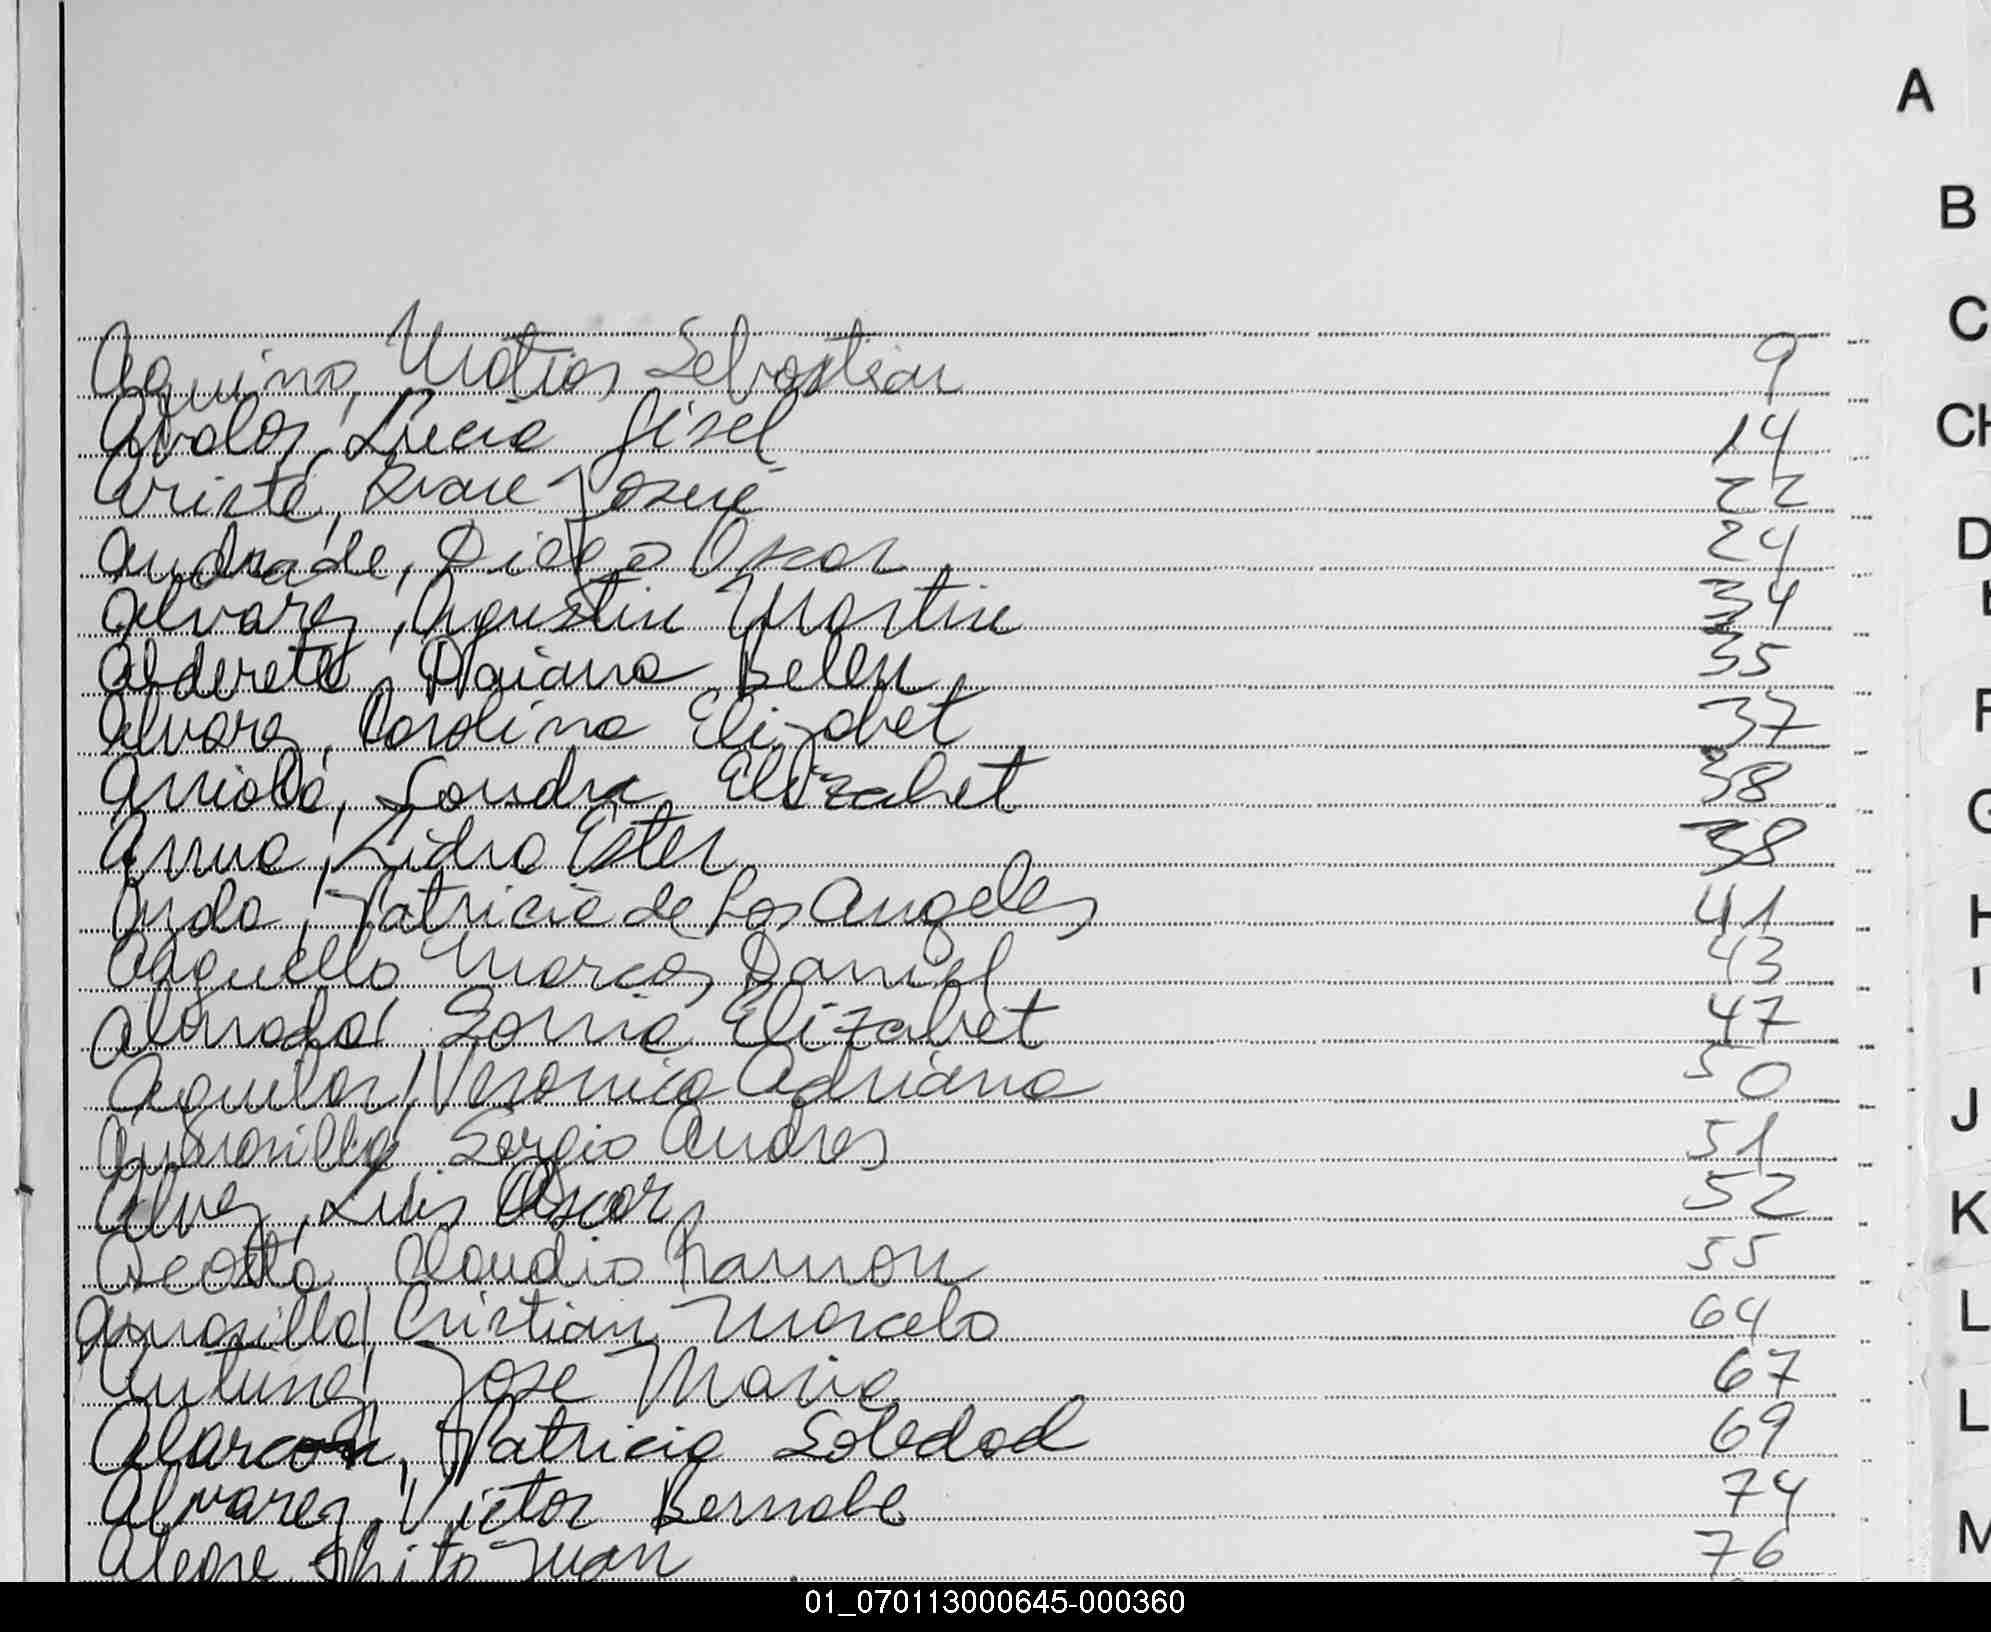 A
B
C
CH
D
F
G
H
I
J
K
L
L
M
Aquino, Matias Sebastian 9
Avalos, Lucia Gisel 14
Ariste, Josué 22
Andrade, Diego Oscar 24
Alvarez, Agustin Martin 34
Alderete, Daiana Belen 35
Alvarez, Carolina Elizabet 37
Arriola, Sandra Elizabet 38
Arrua, Lidia Ester 38
Patricia de Los Angeles 41
Arguello Marcos Daniel 43
Almada, Sonia Elizabet 47
Aguilar, Veronica Adriana 50
Amarilla, Sergio Andres 51
Alvez, Luis Oscar 52
Acosta, Claudio Ramon 55
Amarilla, Cristian Marcelo 64
Antunez, Jose Maria 67
Alarcon, Patricia Soledad 69
Alvarez, Victor Bernabe 74
Alegre Juan 76
01_070113000645-000360